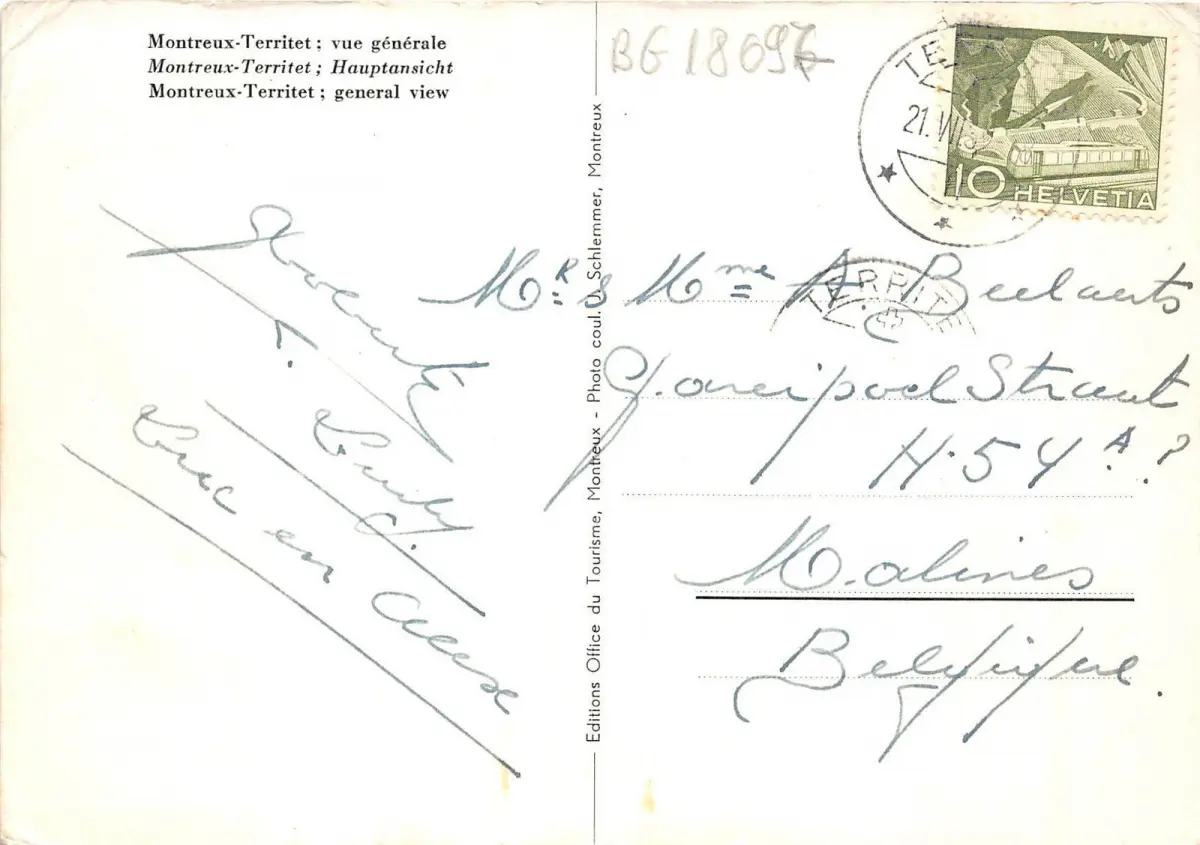 Montreux-Territet ; vue générale
Montreux-Territet ; Hauptansicht
Montreux-Territet ; general view
BG 18097
21. VII.5
10 HELVETIA
Editions Office du Tourisme, Montreux - Photo coul. U. Schlemmer, Montreux
TERRITE
Mr & Mme A. Beelaerts
Straat
H. 54 A.
Malines
Belgique.
Luc en